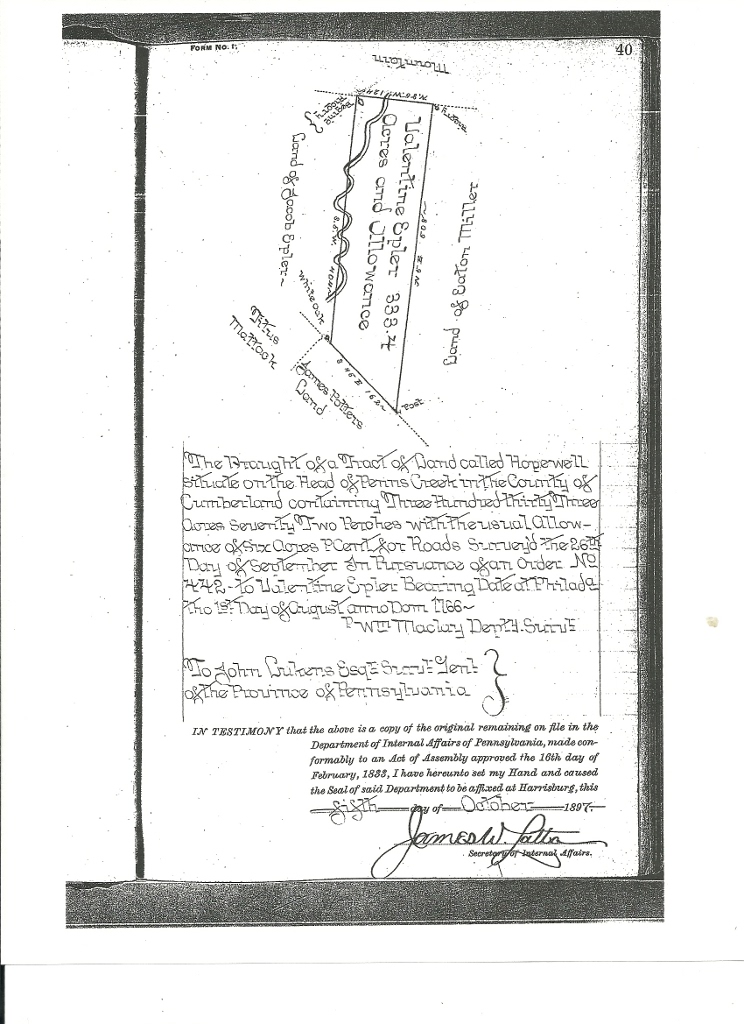 FORM No. 1.
40
Mountain
N.86.W. 124
hickory
Land of Jacob Epler
Valentine Epler 333.4
Acres and Allowance
Land of Eaton Miller
White oak
Titus
Mattock
James Potters
Land
S 46 E 162
Post
The Draught of a Tract of Land called Hopewell
situate on the Head of Penns Creek in the County of
Cumberland containing Three Hundred thirty Three
Acres Seventy Two Perches with the usual Allow-
ance of Six Acres P Cent. for Roads Survey'd the 26th
Day of September In Pursuance of an Order No
442 - to Valentine Epler Bearing Date at Philada
the 1st Day of August anno Dom 1766
P Wm Maclay Depty. Survr
To John Lukens Esqr Survr Genl
of the Province of Pennsylvania
IN TESTIMONY that the above is a copy of the original remaining on file in the
Department of Internal Affairs of Pennsylvania, made con-
formably to an Act of Assembly approved the 16th day of
February, 1833, I have hereunto set my Hand and caused
the Seal of said Department to be affixed at Harrisburg, this
Sixth day of October 1897.
James W. Latta
Secretary of Internal Affairs.